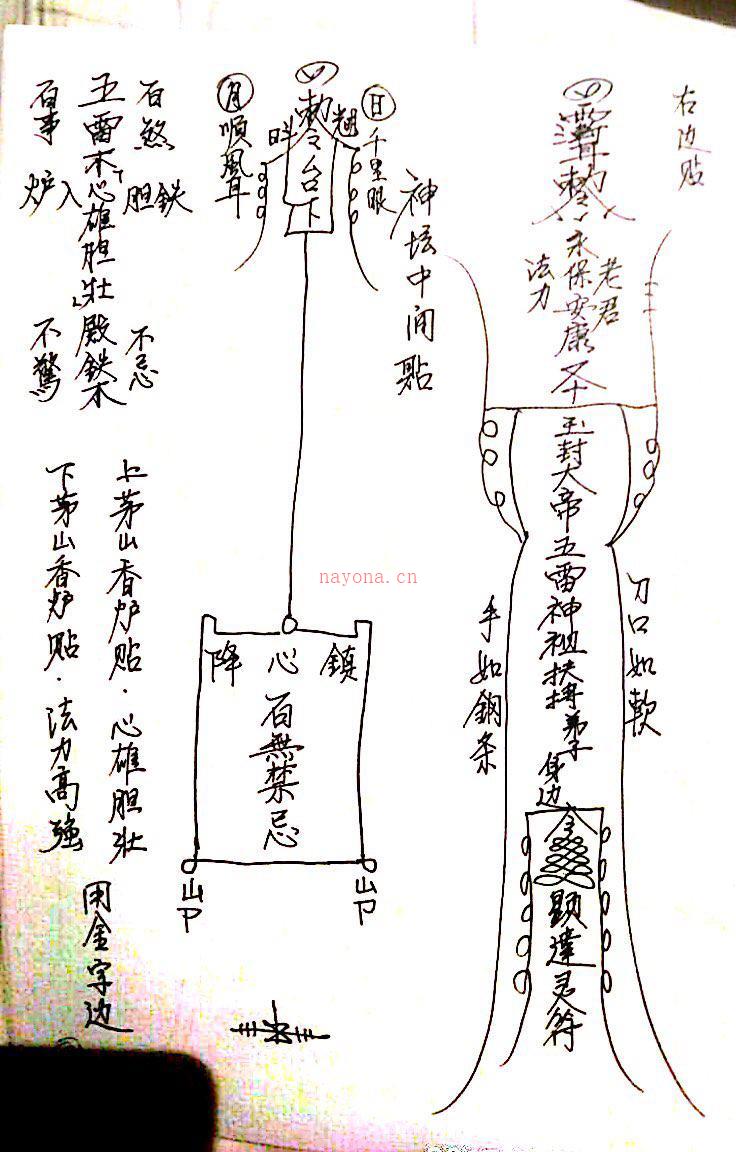 右边贴
敕令
老君
法力
永保安康
玉封大帝五雷神祖扶持弟子
身边
刀口如軟
手如鋼条
顕達灵符
神坛中间點
日千里眼
敕令台下
月順風耳
鎮
心
降
百無禁忌
百煞
五雷木心雄胆壮殿鉄木
百事
胆鉄
入
炉
不忌
不驚
上茅山香炉贴·心雄胆壮
下茅山香炉贴·法力高強
用金字边
nayona.cn